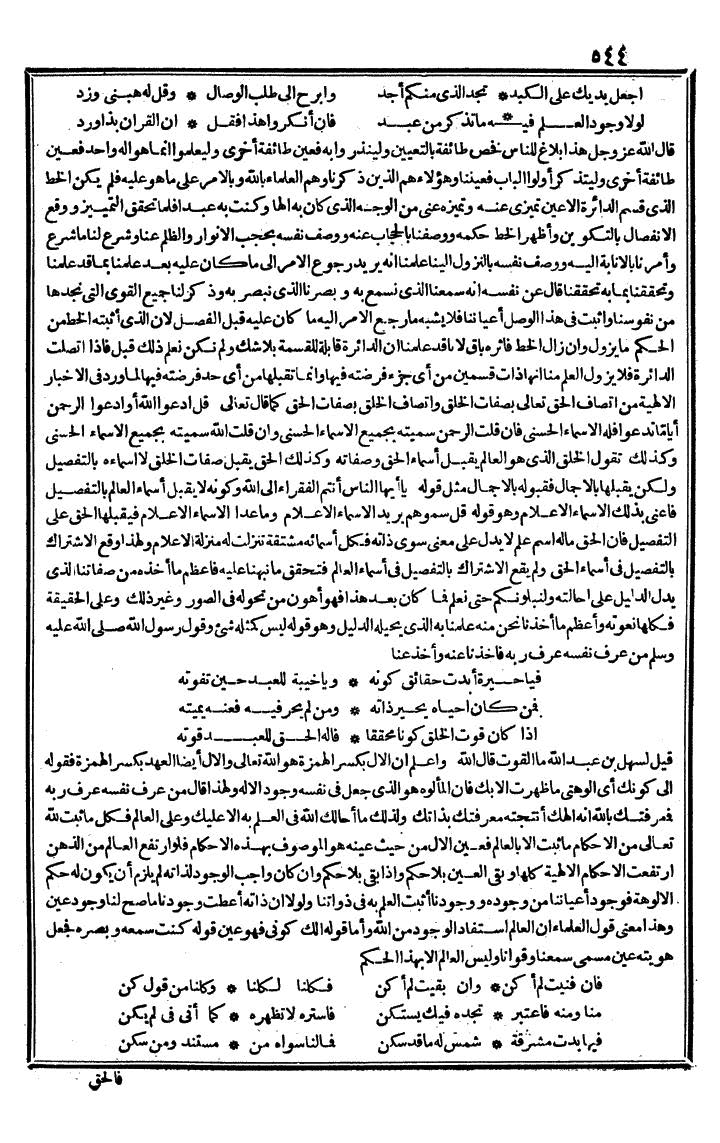 ٥٤٤
اجعل يديك على الكبد * تجد الذى منكم أجد وابرح الى طلب الوصال * وقل له هبنى وزد
لولا وجود العلم فيه * ما تذكر من عبد فان أنكروا هذا فقل * ان القران بذا ورد
قال الله عز وجل هذا بلاغ للناس فخص طائفة بالتعيين ولينذروا به فعين طائفة أخرى وليعلموا انما هو اله واحد فعين
طائفة أخرى وليتذكر أولوا الالباب فعيننا وهؤلاء هم الذين ذكرناهم العلماء بالله وبالامر على ما هو عليه فلم يكن الخط
الذى قسم الدائرة الا عين تميزى عنه وتميزه عنى من الوجه الذى كان به الها وكنت به عبدا فلما تحقق التمييز ووقع
الانفصال بالتكوين وأظهر الخط حكمه ووصفنا بالحجاب عنه ووصف نفسه بحجب الانوار والظلم عنا وشرع لنا ما شرع
وأمرنا بالانابة اليه ووصف نفسه بالنزول الينا علمنا انه يريد رجوع الامر الى ما كان عليه بعد علمنا بما قد علمنا
وتحققنا بما به تحققنا قال عن نفسه انه سمعنا الذى نسمع به وبصرنا الذى نبصر به وذكر لنا جميع القوى التى نجدها
من نفوسنا واثبت فى هذا الوصل أعياننا فلا يشبه ما رجع الامر اليه ما كان عليه قبل الفصل لان الذى أثبته الخط من
الحكم ما يزول وان زال الخط فاثره باق لانا قد علمنا ان الدائرة قابلة للقسمة بلا شك ولم نكن نعلم ذلك قبل فاذا اتصلت
الدائرة فلا يزول العلم منا انها ذات قسمين من أى جزء فرضته فيها وانما تقبلها من أى حد فرضته فيها لما ورد فى الاخبار
الالهية من اتصاف الحق تعالى بصفات الخلق واتصاف الخلق بصفات الحق كما قال تعالى قل ادعوا الله أو ادعوا الرحمن
أياما تدعوا فله الاسماء الحسنى فان قلت الرحمن سميته بجميع الاسماء الحسنى وان قلت الله سميته بجميع الاسماء الحسنى
وكذلك تقول الخلق الذى هو العالم يقبل أسماء الحق وصفاته وكذلك الحق يقبل صفات الخلق لا اسماءه بالتفصيل
ولكن يقبلها بالاجمال فقبوله بالاجمال مثل قوله يأيها الناس أنتم الفقراء الى الله وكونه لا يقبل أسماء العالم بالتفصيل
فاعنى بذلك الاسماء الاعلام وهو قوله قل سموهم يريد الاسماء الاعلام وما عدا الاسماء الاعلام فيقبلها الحق على
التفصيل فان الحق ما له اسم علم لا يدل على معنى سوى ذاته فكل أسمائه مشتقة تنزلت له منزلة الاعلام ولهذا وقع الاشتراك
بالتفصيل فى أسماء الحق ولم يقع الاشتراك بالتفصيل فى أسماء العالم فتحقق ما نبهنا عليه فاعظم ما أخذه من صفاتنا الذى
يدل الدليل على احالته ولنبلونكم حتى نعلم فما كان بعد هذا فهو أهون من تحوله فى الصور وغير ذلك وعلى الحقيقة
فكلها نعوته وأعظم ما أخذنا نحن منه علمنا به الذى يحيله الدليل وهو قوله ليس كمثله شئ وقول رسول الله صلى الله عليه
وسلم من عرف نفسه عرف ربه فاخذنا عنه وأخذ عنا
فيا حيرة أبدت حقائق كونه * ويا خيبة للعبد حين تفوته
فمن كان احياه يحير ذاته * ومن لم يحر فيه فعنه يميته
اذا كان قوت الخلق كونا محققا * فاله الحق للعبد قوته
قيل لسهل بن عبد الله ما القوت قال الله واعلم ان الال بكسر الهمزة هو الله تعالى والال أيضا العهد بكسر الهمزة فقوله
الى كونك أى الوهتى ما ظهرت الا بك فان المألوه هو الذى جعل فى نفسه وجود الاله ولهذا قال من عرف نفسه عرف ربه
فمعرفتك بالله انه الهك أنتجته معرفتك بذاتك ولذلك ما أحالك الله فى العلم به الا عليك وعلى العالم فكل ما ثبت لله
تعالى من الاحكام ما ثبت الا بالعالم فعين الال من حيث عينه هو الموصوف بهذه الاحكام فلو ارتفع العالم من الذهن
ارتفعت الاحكام الالهية كلها وبقى العين بلا حكم واذا بقى بلا حكم وان كان واجب الوجود لذاته لم يلزم أن يكون له حكم
الالوهة فوجود أعياننا من وجوده ووجودنا أثبت العلم به فى ذواتنا ولولا ان ذاته أعطت وجودنا ما صح لنا وجود عين
وهذا معنى قول العلماء ان العالم استفاد الوجود من الله وأما قوله الك كونى فهو عين قوله كنت سمعه وبصره فجعل
هويته عين مسمى سمعنا وقوانا وليس العالم الا بهذا الحكم
فان فنيت لم أكن * وان بقيت لم أكن فكلنا لكلنا * وكلنا من قول كن
منا ومنه فاعتبر * تجده فيك يستكن فاستره لا تظهره * كما أتى فى لم يكن
فيها بدت مشرقة * شمس له ما قد سكن فما لنا سواه من * مستند ومن سكن
فالحق